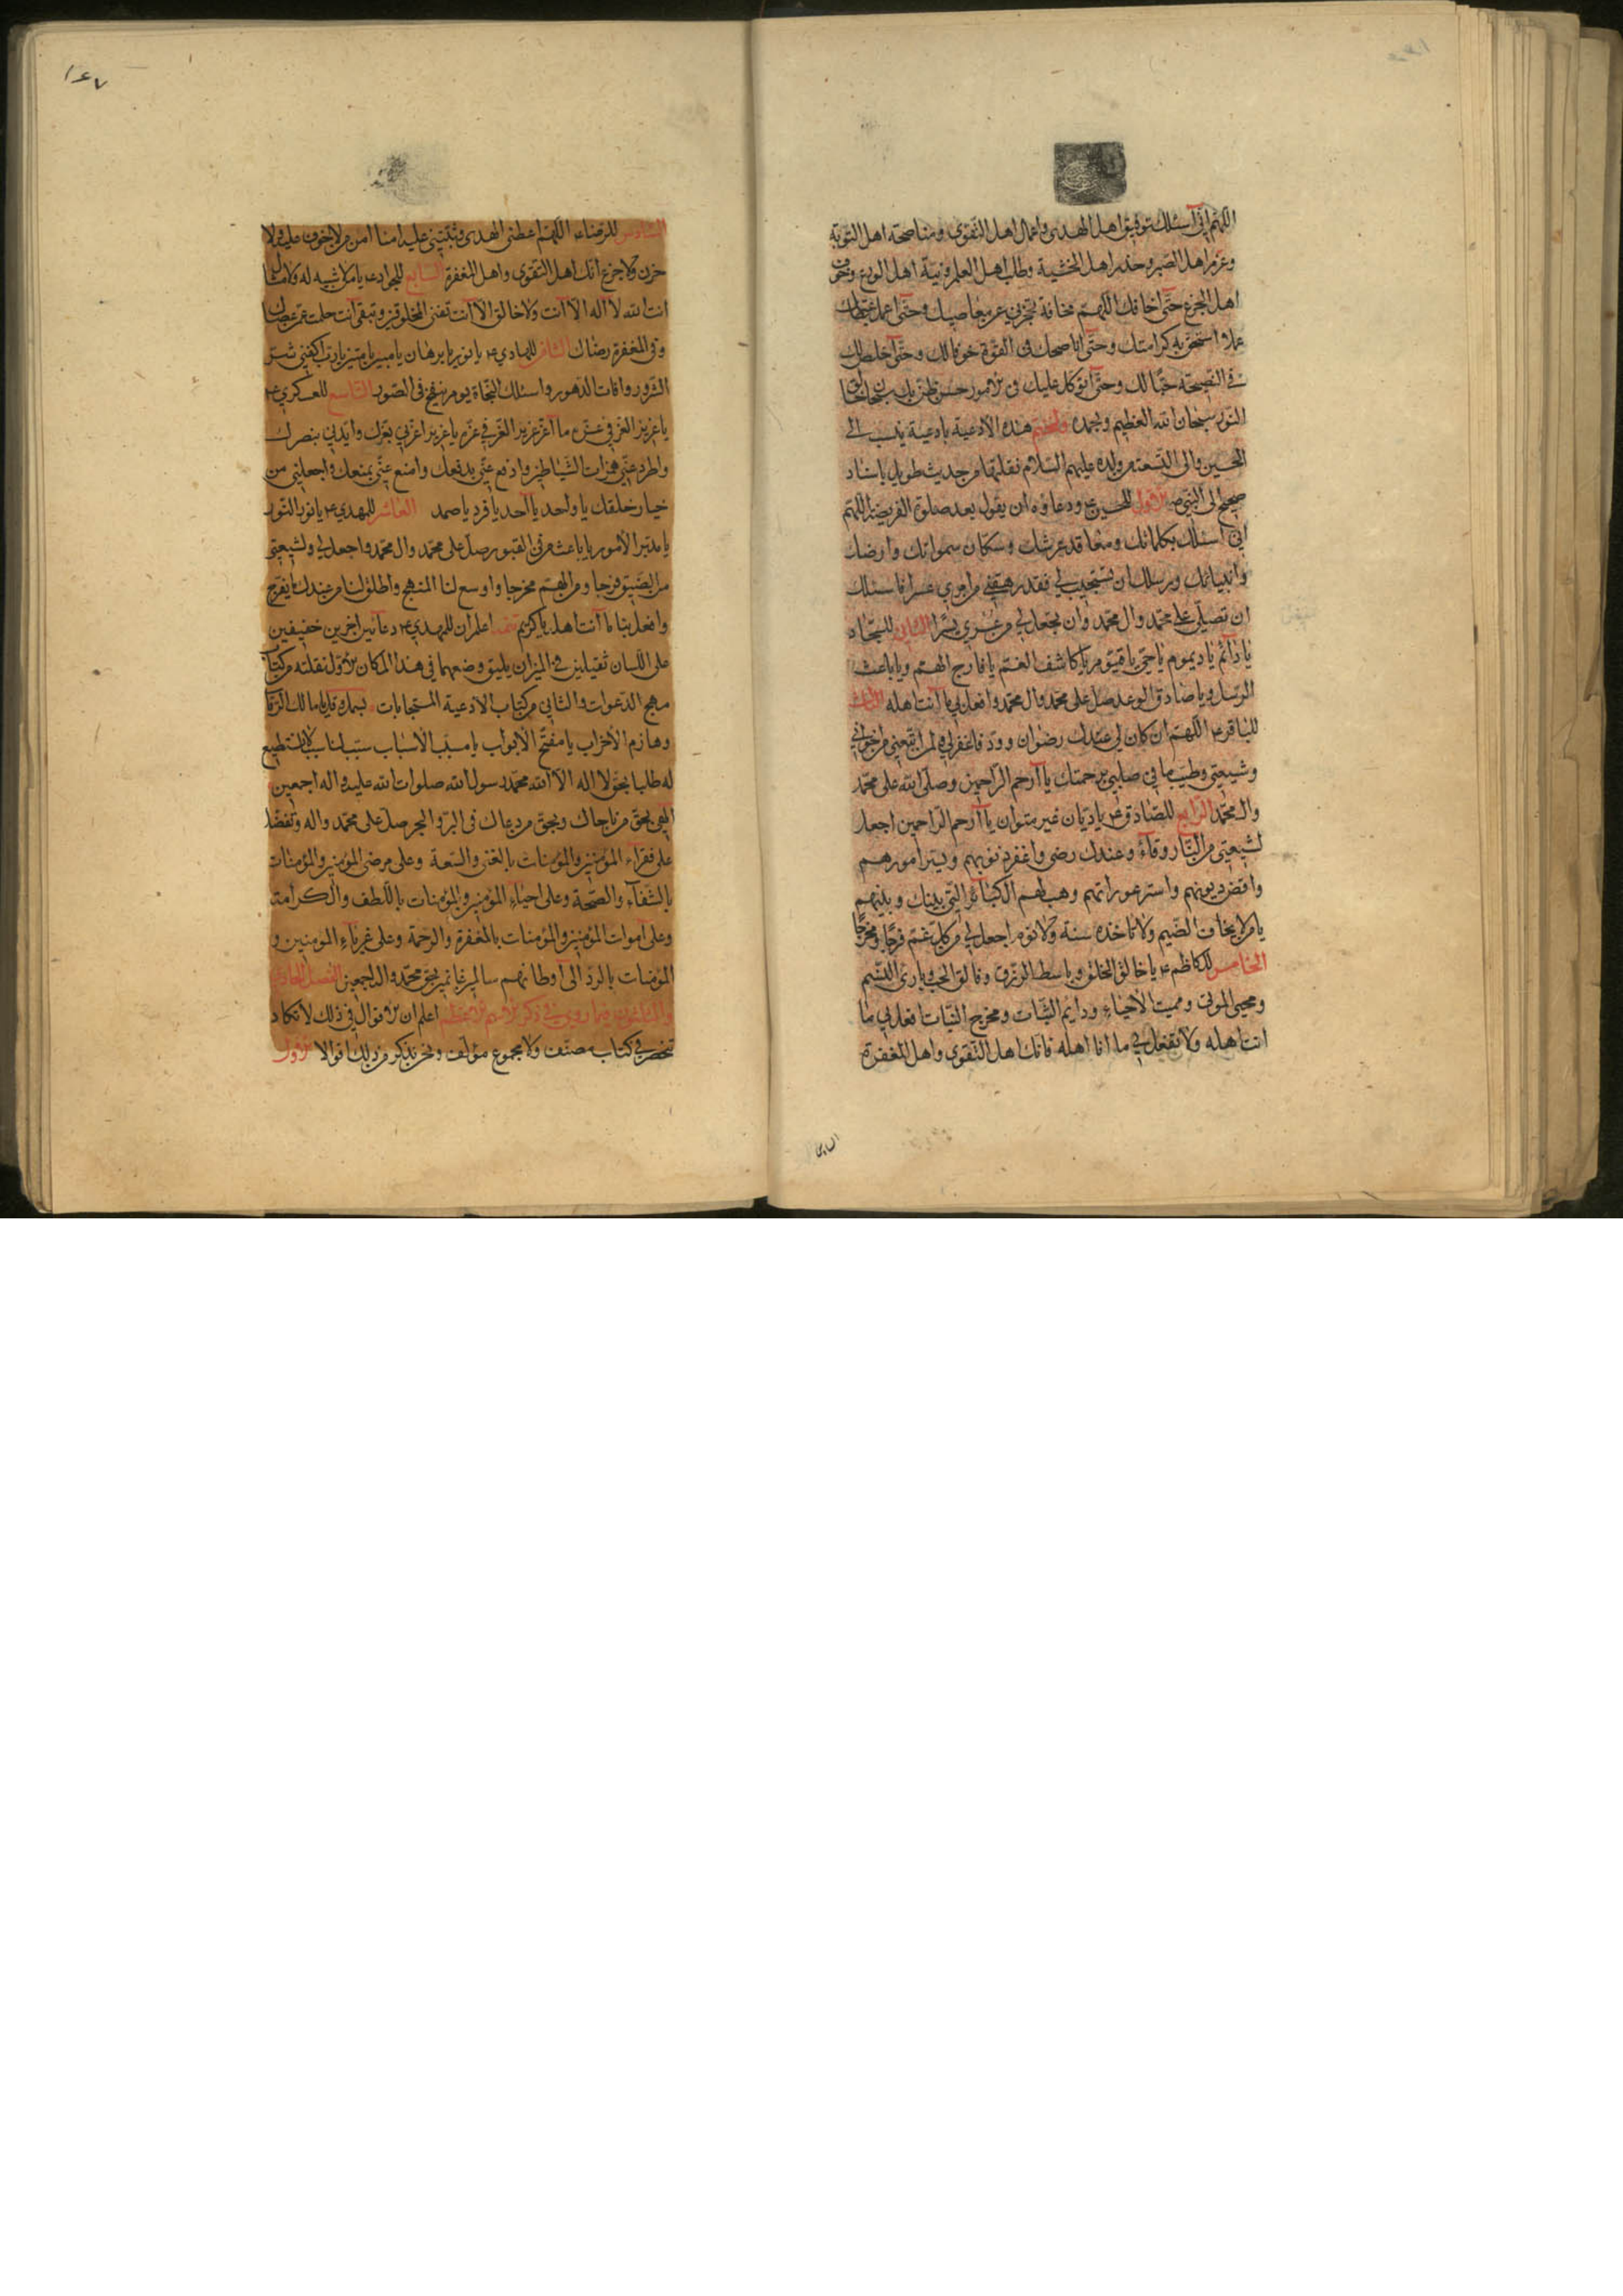 اللهم اني اسئلك توفيق اهل الهدى واعمال اهل التقوى ومناصحة اهل التوبة
وعزم اهل الصبر وحذر اهل الخشية وطلب اهل العلم وزينة اهل الورع وخوف
اهل الجزع حتى اخافك اللهم مخافة تحجزني عن معاصيك وحتى اعمل بطاعتك
عملا استحق به كرامتك وحتى اناصحك في التوبة خوفا لك وحتى اخلص لك
في النصيحة حبا لك وحتى اتوكل عليك في الامور حسن ظن بك سبحان خالق
النور سبحان الله العظيم وبحمده ولنختم هذه الادعية بادعية ينسب الى
الحسين والى التسعة من ولده عليهم السلام نقلتها من حديث طويل باسناد
صحيح الى النبي ص الاول للحسين ع ودعاؤه ان يقول بعد صلوة الفريضة اللهم
اني اسئلك بكلماتك ومعاقد عرشك وسكان سمواتك وارضك
وانبيائك ورسلك ان تستجيب لي فقد رهقني من امري عسر فاسئلك
ان تصلي على محمد وال محمد وان تجعل لي من عسري يسرا الثاني للسجاد
يا دائم يا ديموم يا حي يا قيوم يا كاشف الغم يا فارج الهم ويا باعث
الرسل ويا صادق الوعد صل على محمد وال محمد وافعل بي ما انت اهله الثالث
للباقر ع اللهم ان كان لي عندك رضوان وود فاغفر لي ولمن اتبعني من اخواني
وشيعتي وطيب ما في صلبي برحمتك يا ارحم الراحمين وصلى الله على محمد
وال محمد الرابع للصادق ع يا ديان غير متوان يا ارحم الراحمين اجعل
لشيعتي من النار وقاء وعندك رضى واغفر ذنوبهم ويسر امورهم
واقض ديونهم واستر عوراتهم وهب لهم الكبائر التي بينك وبينهم
يا من لا يخاف الضيم ولا تاخذه سنة ولا نوم اجعل لي من كل غم فرجا ومخرجا
الخامس للكاظم ع يا خالق الخلق وباسط الرزق وفالق الحب وبارئ النسم
ومحيي الموتى ومميت الاحياء ودايم الثبات ومخرج النبات افعل بي ما
انت اهله ولا تفعل بي ما انا اهله فانك اهل التقوى واهل المغفرة
السادس
١٤٧
السادس للرضاء اللهم اعطني الهدى وثبتني عليه امنا امن من لا خوف عليه ولا
حزن ولا جزع انك اهل التقوى واهل المغفرة السابع للجواد ع يا من لا شبيه له ولا مثال
انت الله لا اله الا انت ولا خالق الا انت تفني المخلوقين وتبقى انت حلمت عمن عصاك
وفي المغفرة رضاك الثامن للهادي ع يا نور يا برهان يا مبين يا منير يا رب اكفني شر
الشرور وافات الدهور واسئلك النجاة يوم ينفخ في الصور التاسع للعسكري ع
يا عزيز العز في عزه ما اعز عزيز العز في عزه يا عزيز اعزني بعزك وايدني بنصرك
واطرد عني همزات الشياطين وادفع عني بدفعك وامنع عني بمنعك واجعلني من
خيار خلقك يا واحد يا احد يا فرد يا صمد العاشر للمهدي ع يا نور النور
يا مدبر الامور يا باعث من في القبور صل على محمد وال محمد واجعل لي ولشيعتي
من الضيق فرجا ومن الهم مخرجا واوسع لنا المنهج واطلق لنا من عندك ما يفرج
وافعل بنا ما انت اهله يا كريم اعلم ان للمهدي ع دعائين اخرين خفيفين
على اللسان ثقيلين في الميزان يليق وضعهما في هذا المكان الاول نقلته من كتاب
مهج الدعوات والثاني من كتاب الادعية المستجابات يا مالك الرقاب
وهازم الاحزاب يا مفتح الابواب يا مسبب الاسباب سبب لنا سببا لا نستطيع
له طلبا بحق لا اله الا الله محمد رسول الله صلوات الله عليه واله اجمعين
الهي بحق من ناجاك وبحق من دعاك في البر والبحر صل على محمد واله وتفضل
على فقراء المؤمنين والمؤمنات بالغنى والسعة وعلى مرضى المؤمنين والمؤمنات
بالشفاء والصحة وعلى احياء المؤمنين والمؤمنات باللطف والكرامة
وعلى اموات المؤمنين والمؤمنات بالمغفرة والرحمة وعلى غرباء المؤمنين و
المؤمنات بالرد الى اوطانهم سالمين غانمين بحق محمد واله اجمعين الفصل الحادي
والثلاثون فيما روي في ذكر الاسم الاعظم اعلم ان الاقوال في ذلك لا تكاد
تنحصر في كتاب مصنف ولا مجموع مؤلف ونحن نذكر من ذلك اقوالا الاول